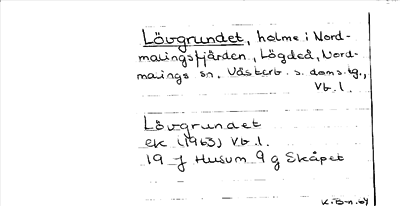 Lövgrundet, holme i Nord-
malingsfjärden, Lögdeå, Nord-
malings sn. Västerb. s. doms.tg.,
Vb. l.
Lövgrundet
ek (1963) Vb. l.
19 J Husum 9 g Skåpet
K.B-n.64